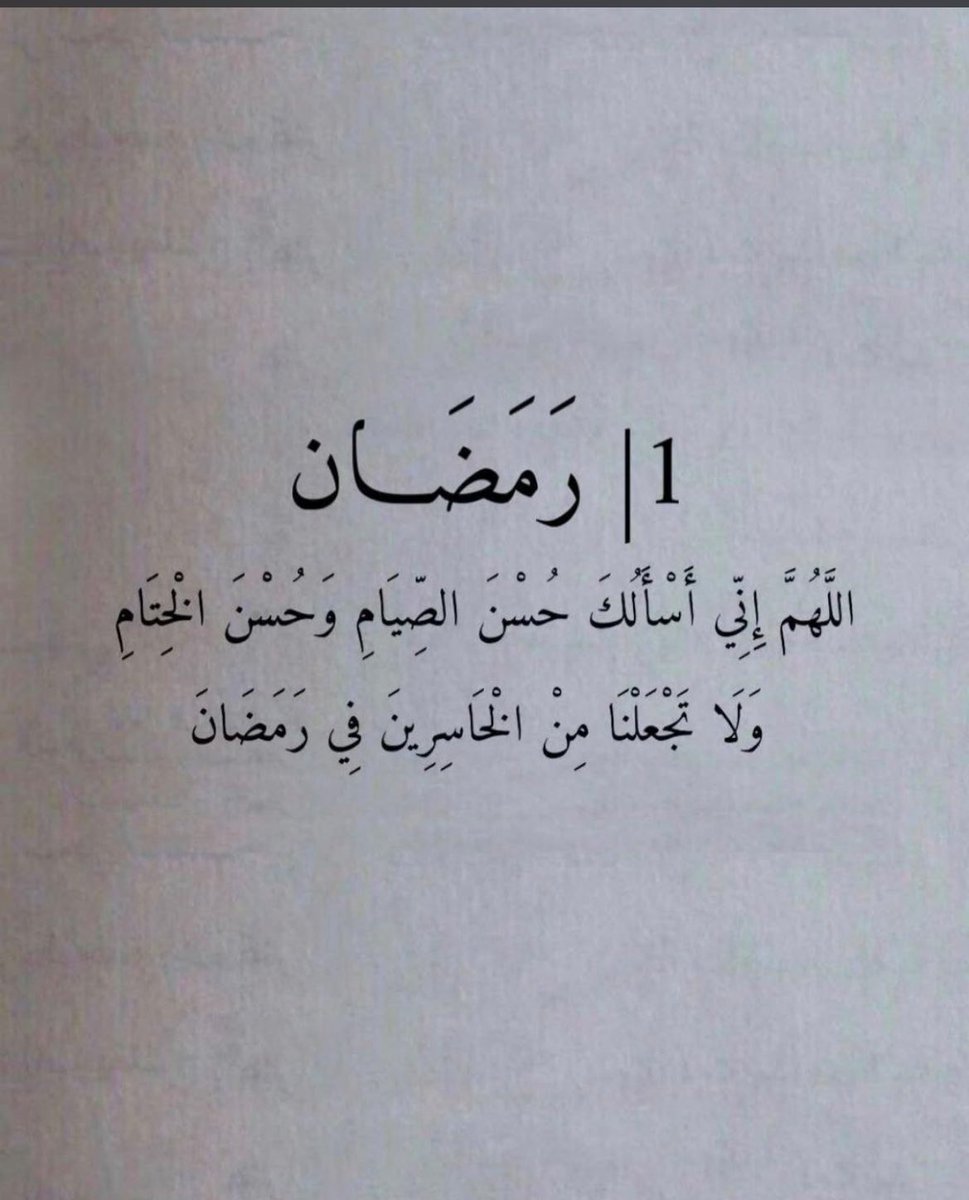 1| رَمَضَـان
اللَّهُمَّ إِنِّي أَسْأَلُكَ حُسْنَ الصِّيَامِ وَحُسْنَ الْخِتَامِ
وَلَا تَجْعَلْنَا مِنْ الْخَاسِرِينَ فِي رَمَضَانَ